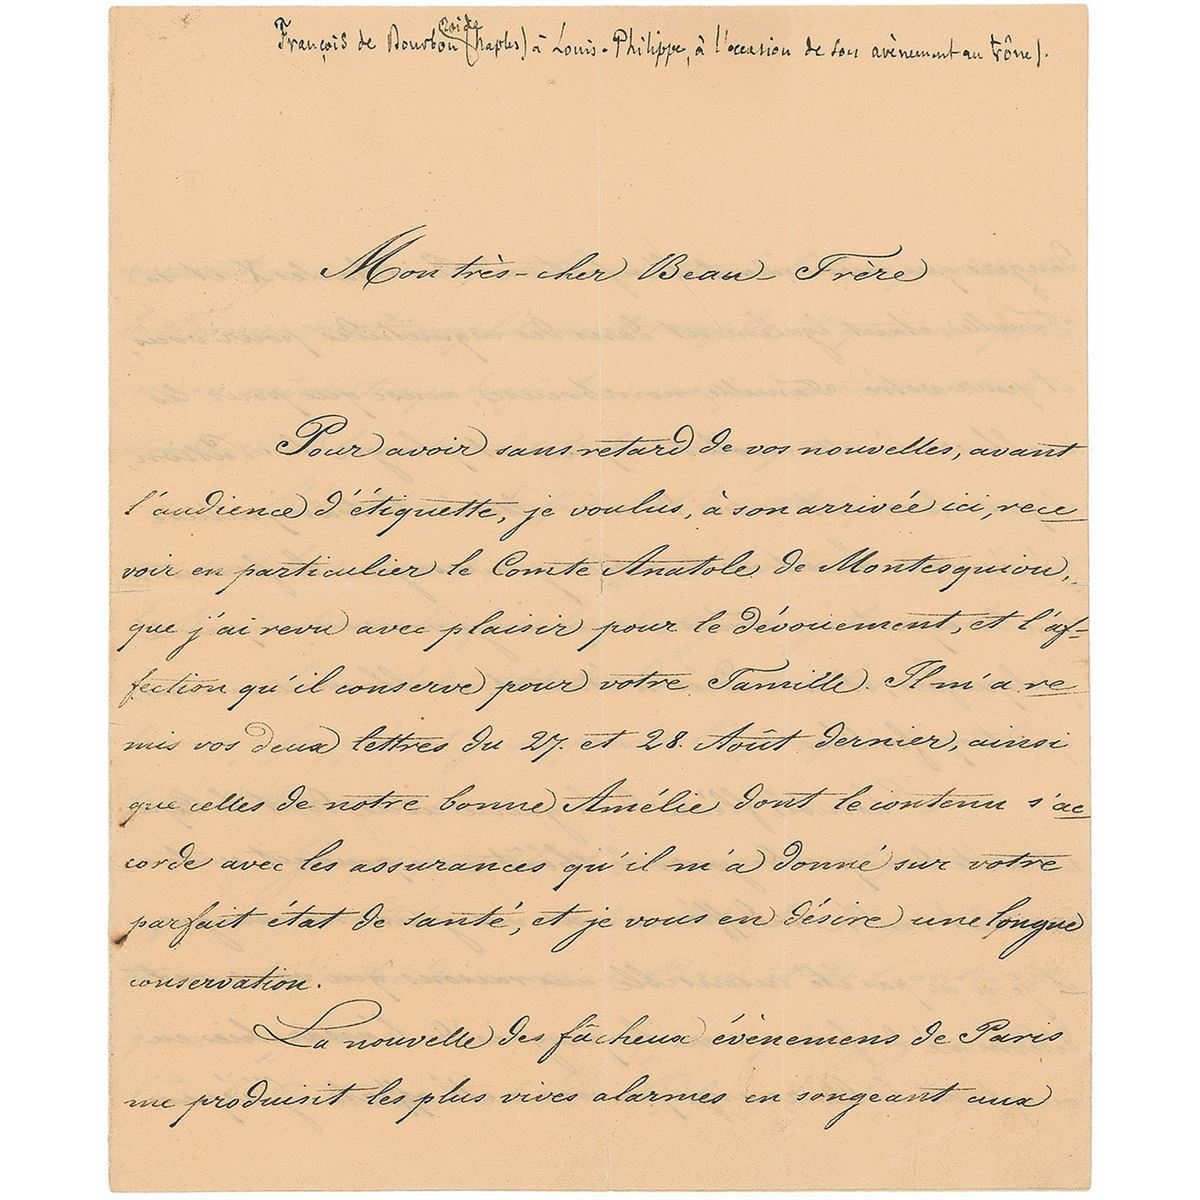 roi de
François de Bourbon (Naples) à Louis-Philippe, à l'occasion de son avènement au trône).
Mon très-cher Beau-Frère
Pour avoir sans retard de vos nouvelles, avant
l'audience d'étiquette, je voulus, à son arrivée ici, rece
voir en particulier le Comte Anatole de Montesquiou,
que j'ai revu avec plaisir pour le dévouement, et l'af-
fection qu'il conserve pour votre Famille. Il m'a re
mis vos deux lettres du 27. et 28. Août dernier, ainsi
que celles de notre bonne Amélie dont le contenu s'ac
corde avec les assurances qu'il m'a donné sur votre
parfait état de santé, et je vous en désire une longue
conservation.
La nouvelle des fâcheux évènemens de Paris
me produisit les plus vives alarmes en songeant aux